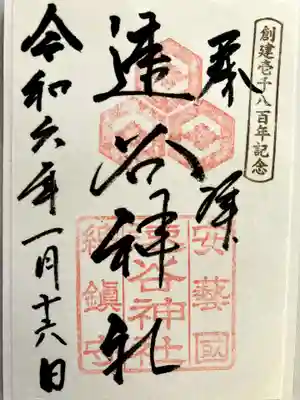 創建壱千八百年記念
奉拝
速谷神社
令和六年一月十六日
安藝国
速谷神社
総鎮守